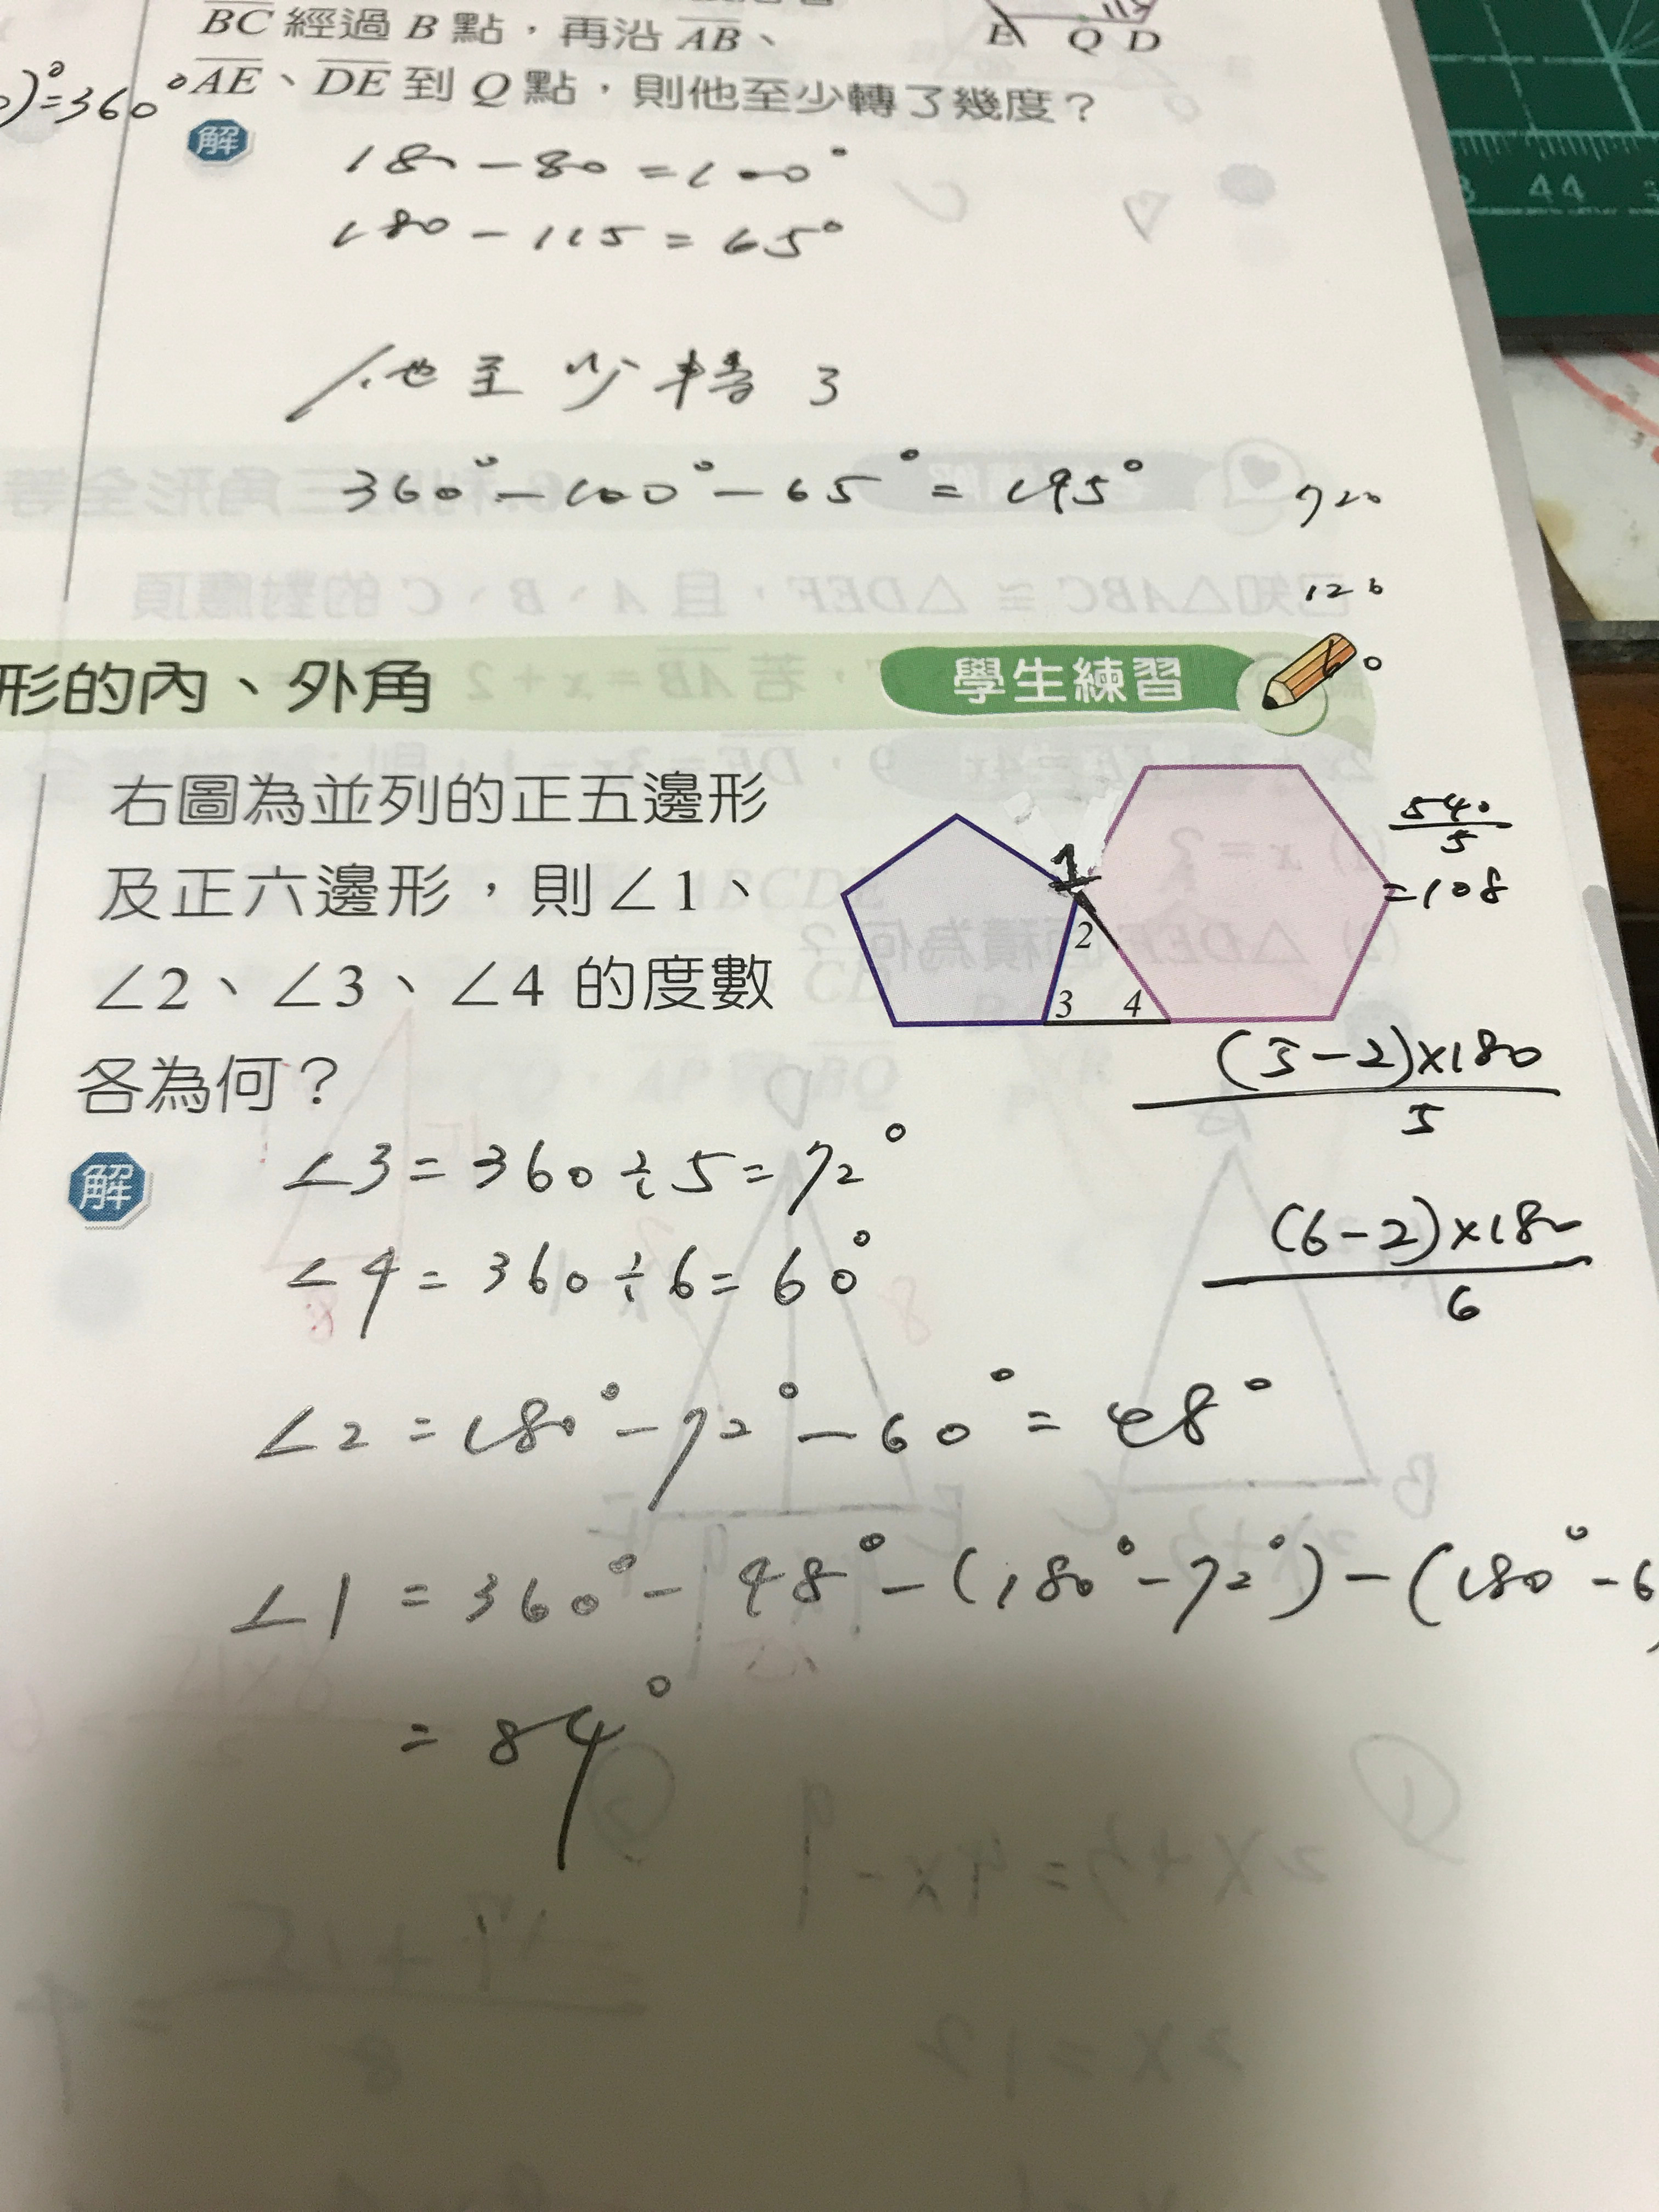 BC 經過 B 點，再沿 AB、
E Q D
)°=360°
AE、DE 到 Q 點，則他至少轉了幾度？
解
180-80=100°
180-115=65°
他至少轉了
360°-100°-65°=195°
720
120
形的內、外角
學生練習
右圖為並列的正五邊形
及正六邊形，則∠1、
∠2、∠3、∠4 的度數
各為何？
1
2
3 4
540/5
=108
(5-2)×180/5
(6-2)×180/6
解
∠3=360÷5=72°
∠4=360÷6=60°
∠2=180°-72°-60°=48°
∠1=360°-48°-(180°-72°)-(180°-6
=84°